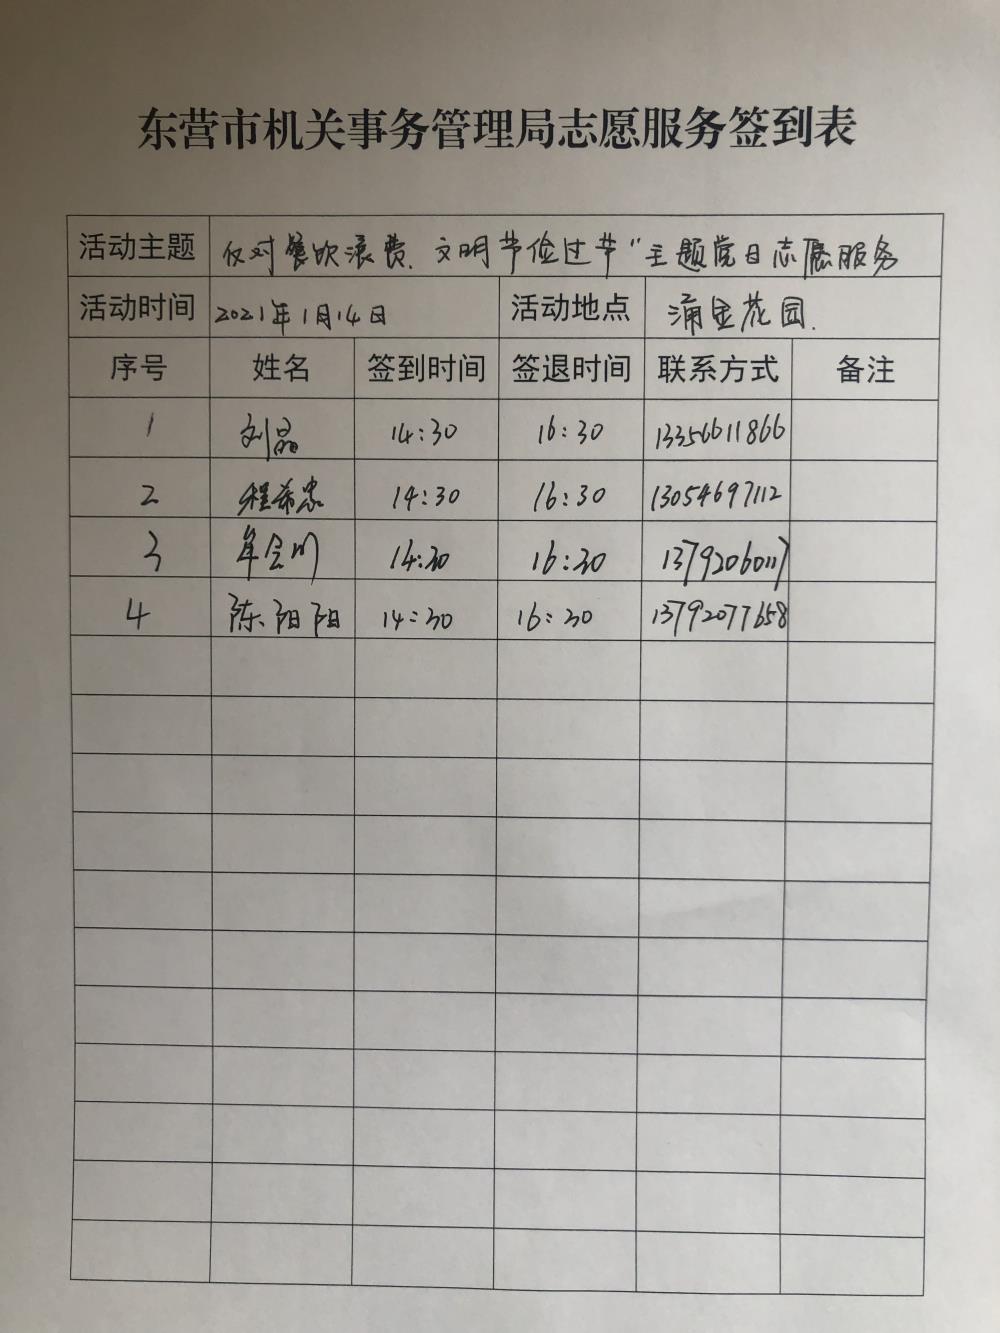 东营市机关事务管理局志愿服务签到表
活动主题 反对餐饮浪费、文明节俭过节"主题党日志愿服务
活动时间 2021年1月14日 活动地点 涌金花园.
序号 姓名 签到时间 签退时间 联系方式 备注
1 刘晶 14:30 16:30 13356611866
2 程希忠 14:30 16:30 13054697112
3 牟会川 14:30 16:30 13792060117
4 陈阳阳 14:30 16:30 13792077658